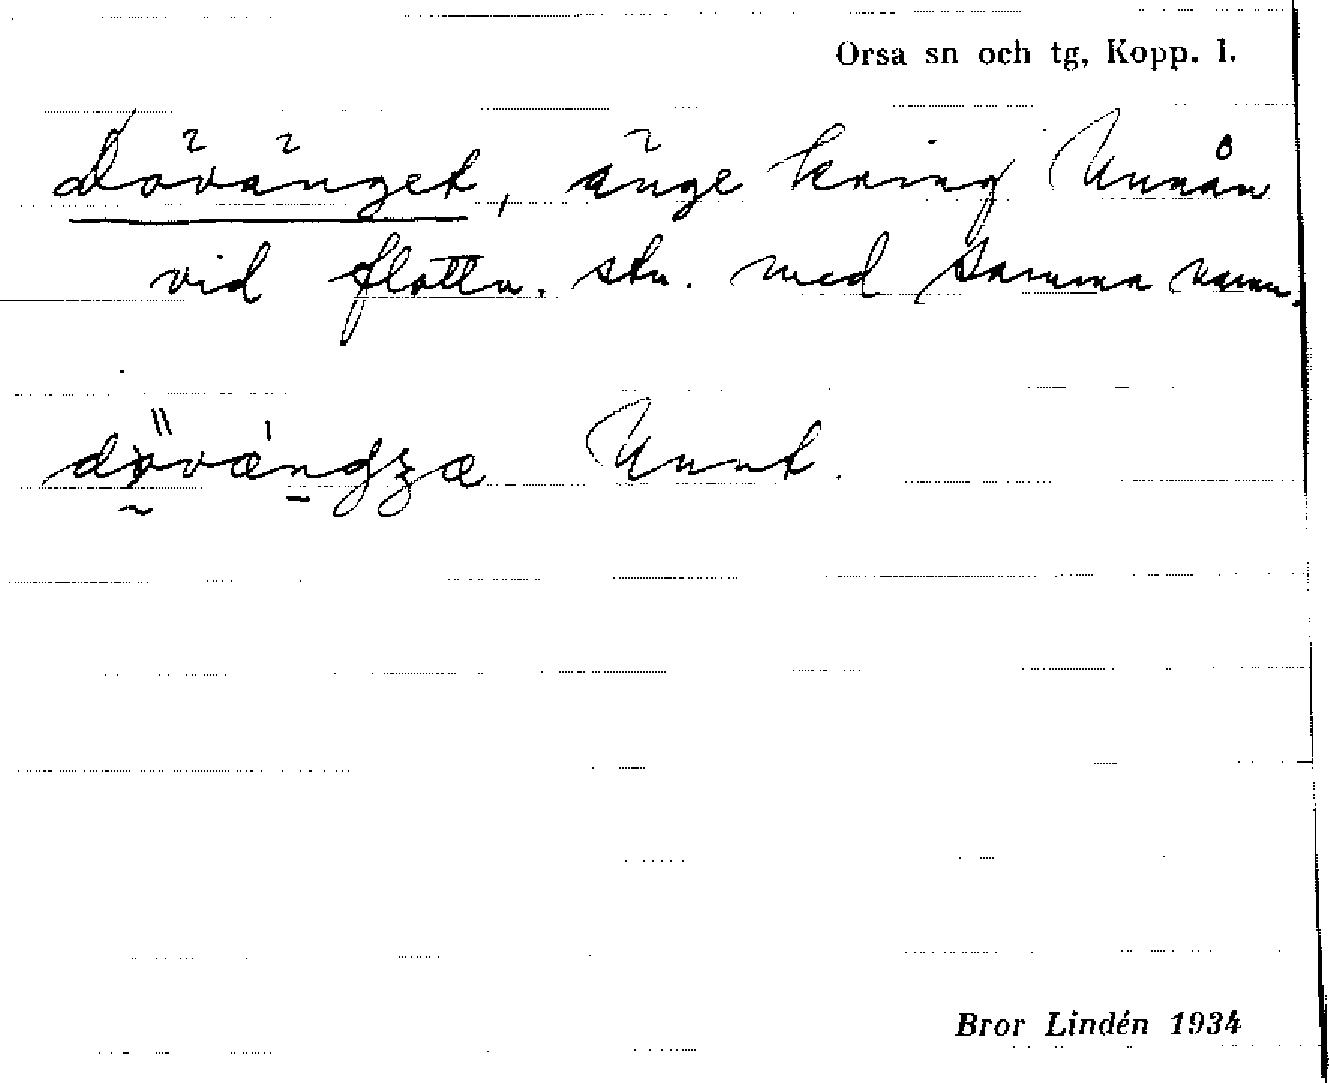 Orsa sn och tg, Kopp. l.
Dövänget, änge kring Unnån
vid flottn. stn. med samma namn.
Unnt.
Bror Lindén 1934